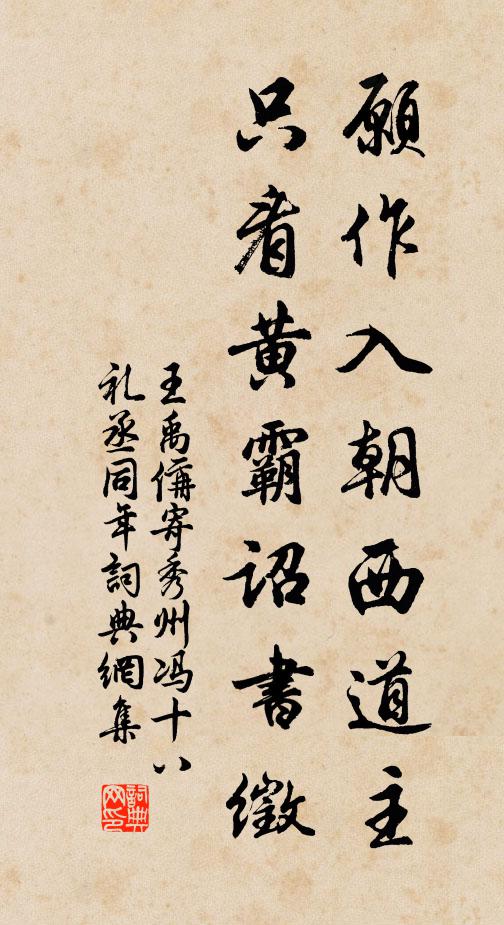 願作入朝西道主
只看黃霸詔書徵
王禹偁寄秀州馮十八
礼丞同年詞典網集
詞典网印